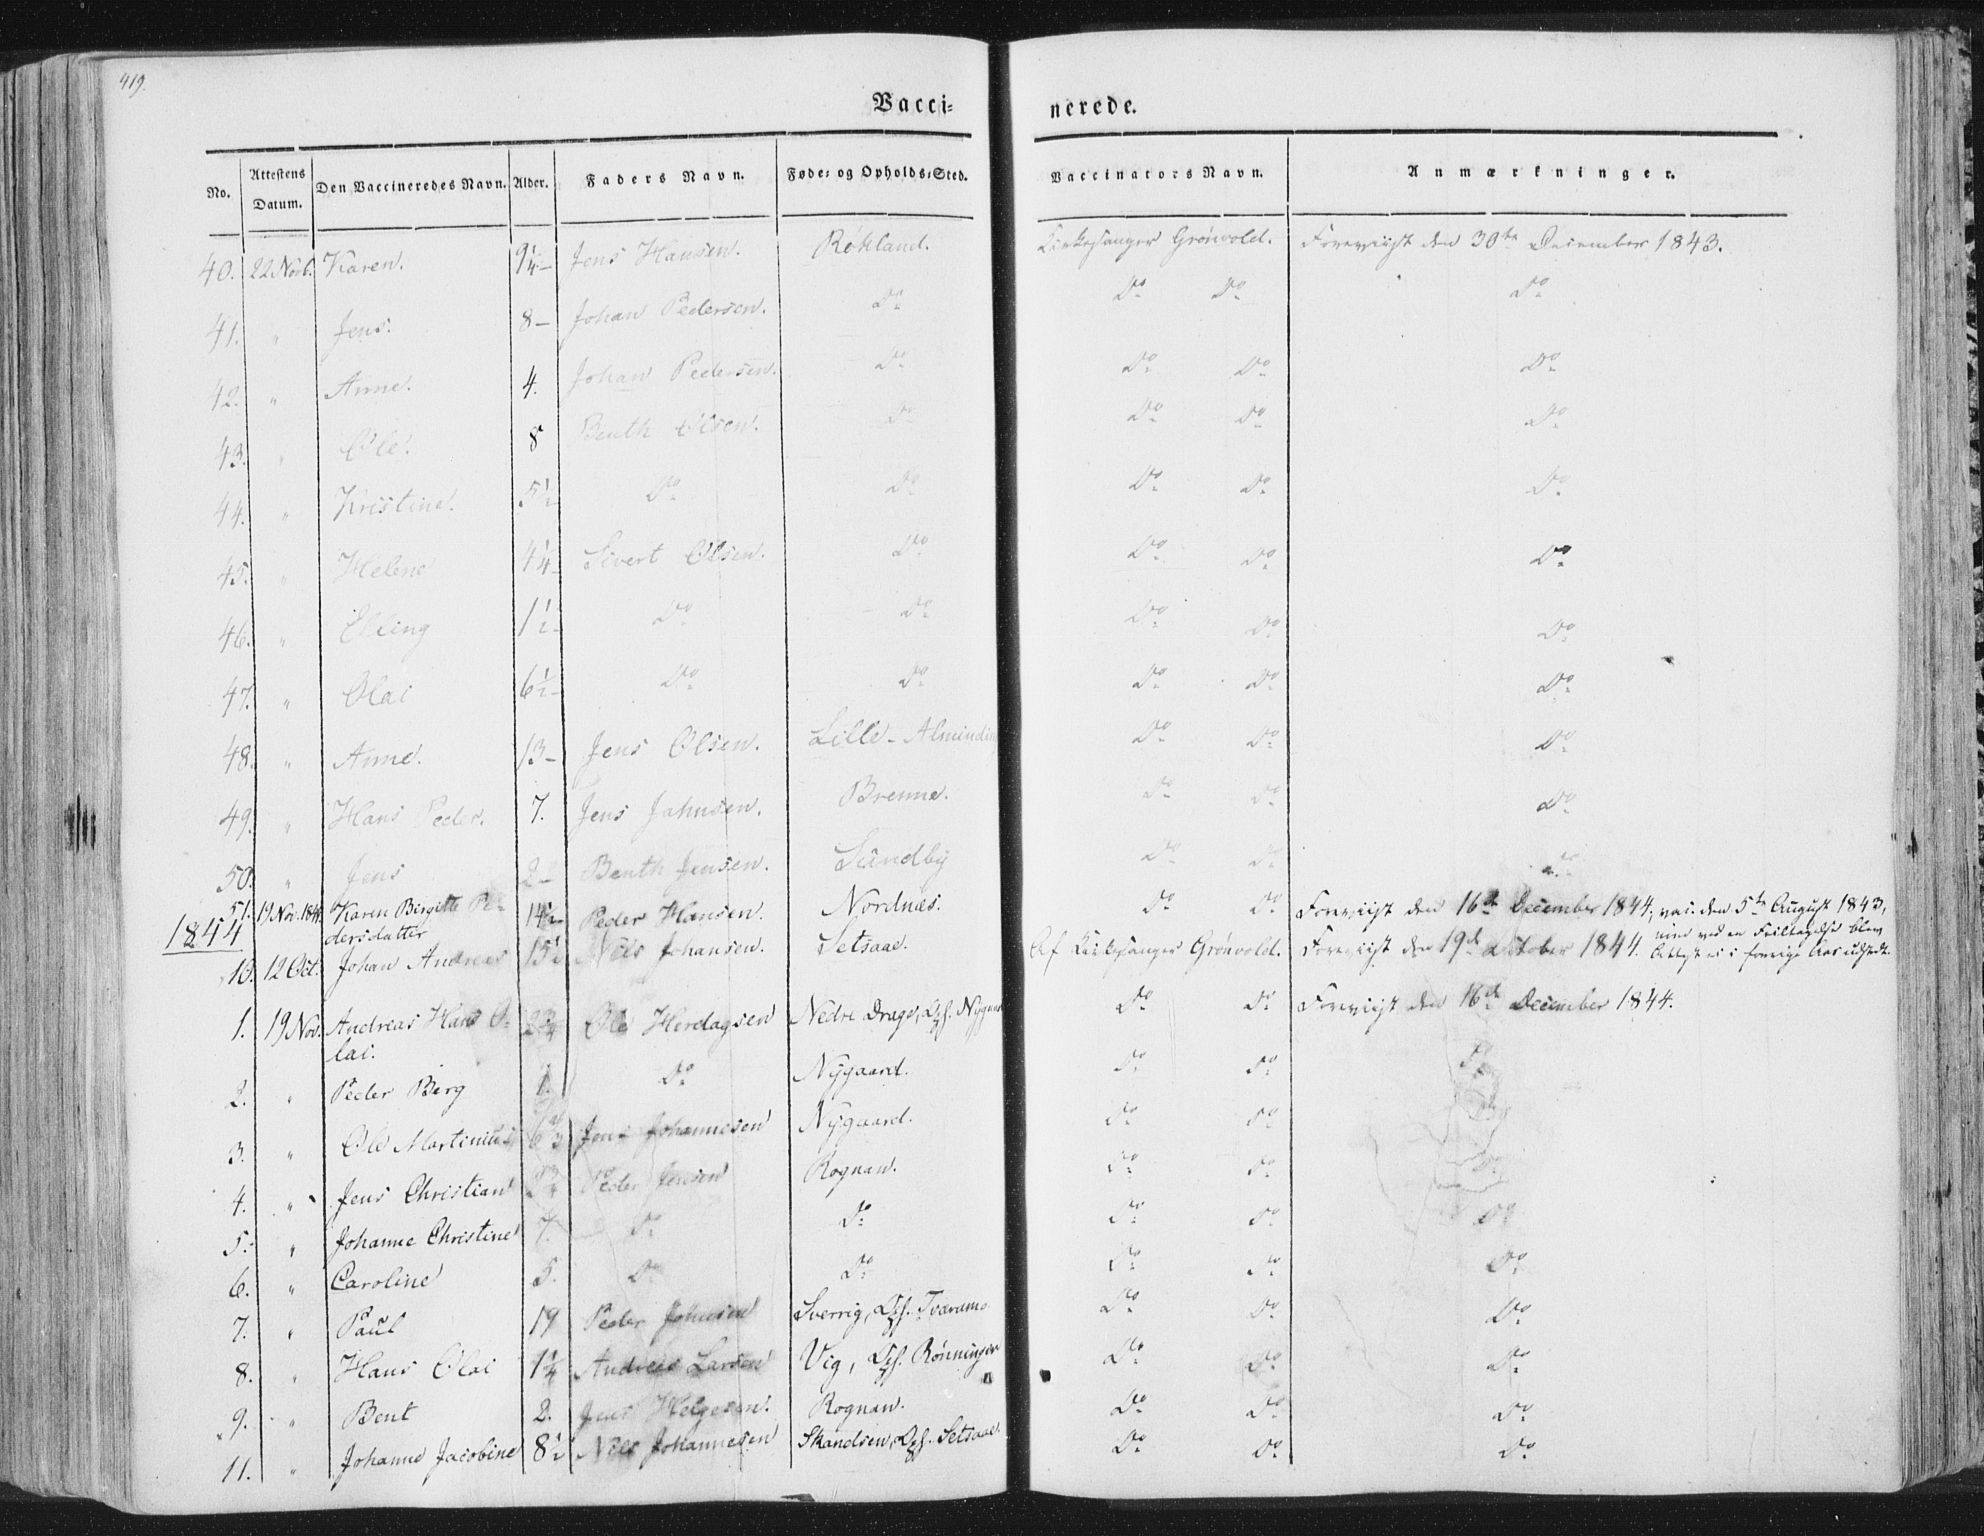 419.
Vacci- nerede.
No. Attestens Datum. Den Vaccineredes Navn. Alder. Faders Navn. Føde- og Opholds-Sted. Vaccinators Navn. Anmærkninger.
40. 22 Novb. Karen. 9 1/4 - Jens Hansen. Røkland. Kirkesanger Grönvold. Foreviist den 30te December 1843.
41. " Jens. 8 - Johan Pedersen. Do Do Do Do
42. " Anne. 4. Johan Pedersen. Do Do Do Do
43. " Ole. 8 Benth Olsen. Do Do Do Do
44. " Kristine. 5 1/2 Do Do Do Do Do
45. " Helene 4 1/4 - Sivert Olsen. Do Do Do Do
46. " Elling 1 1/2 - Do Do Do Do Do
47. " Olai 6 1/2 - Do Do Do Do Do
48. " Anne. 13 - Jens Olsen. Lille-Alminding Do Do Do
49. " Hans Peder. 7. Jens Jahnsen. Brenne. Do Do Do
50. " Jens 2 - Benth Jensen. Sundby Do Do Do
51. 19 Nov. 1844 Karen Birgitte Pe- 14 1/2 - Peder Hansen. Nordnæs. Do Do Foreviist den 16de December 1844, vac. den 5te August 1843,
1844 dersdatter men ved en Feiltagelse blev
10. 12 Oct. Johan Andreas 15 1/2 Niels Johansen. Setsaae. Af Kirkesanger Grönvold. Foreviist den 19de October 1844. Attest ei i forrige Aar udstedt.
1. 19 Nov. Andreas Hans O- 2 3/4 Ole Herdagsen Nedre Drage, Nygaard Do Do Foreviist den 16de December 1844.
lai.
2. " Peder Berg 1. Do Nygaard. Do Do Do
3. " Ole Martinius 6 2/3 Jens Johannesen Nygaard. Do Do
4. " Jens Christian 2 3/4 Peder Jensen Rognan. Do Do
5. " Johanne Christine 7. Do Do Do Do Do
6. " Caroline 5. Do Do Do Do Do
7. " Paul 19 Peder Johnsen Sverrig, Do Do Do
8. " Hans Olai 1 1/4 Andreas Larsen Vig, Rönningen Do Do Do
9. " Bent 2. Jens Helgesen. Rognan. Do Do Do
11. " Johanne Jacobine 8 1/2 Niels Johannesen Skandsen, Setsaae. Do Do Do